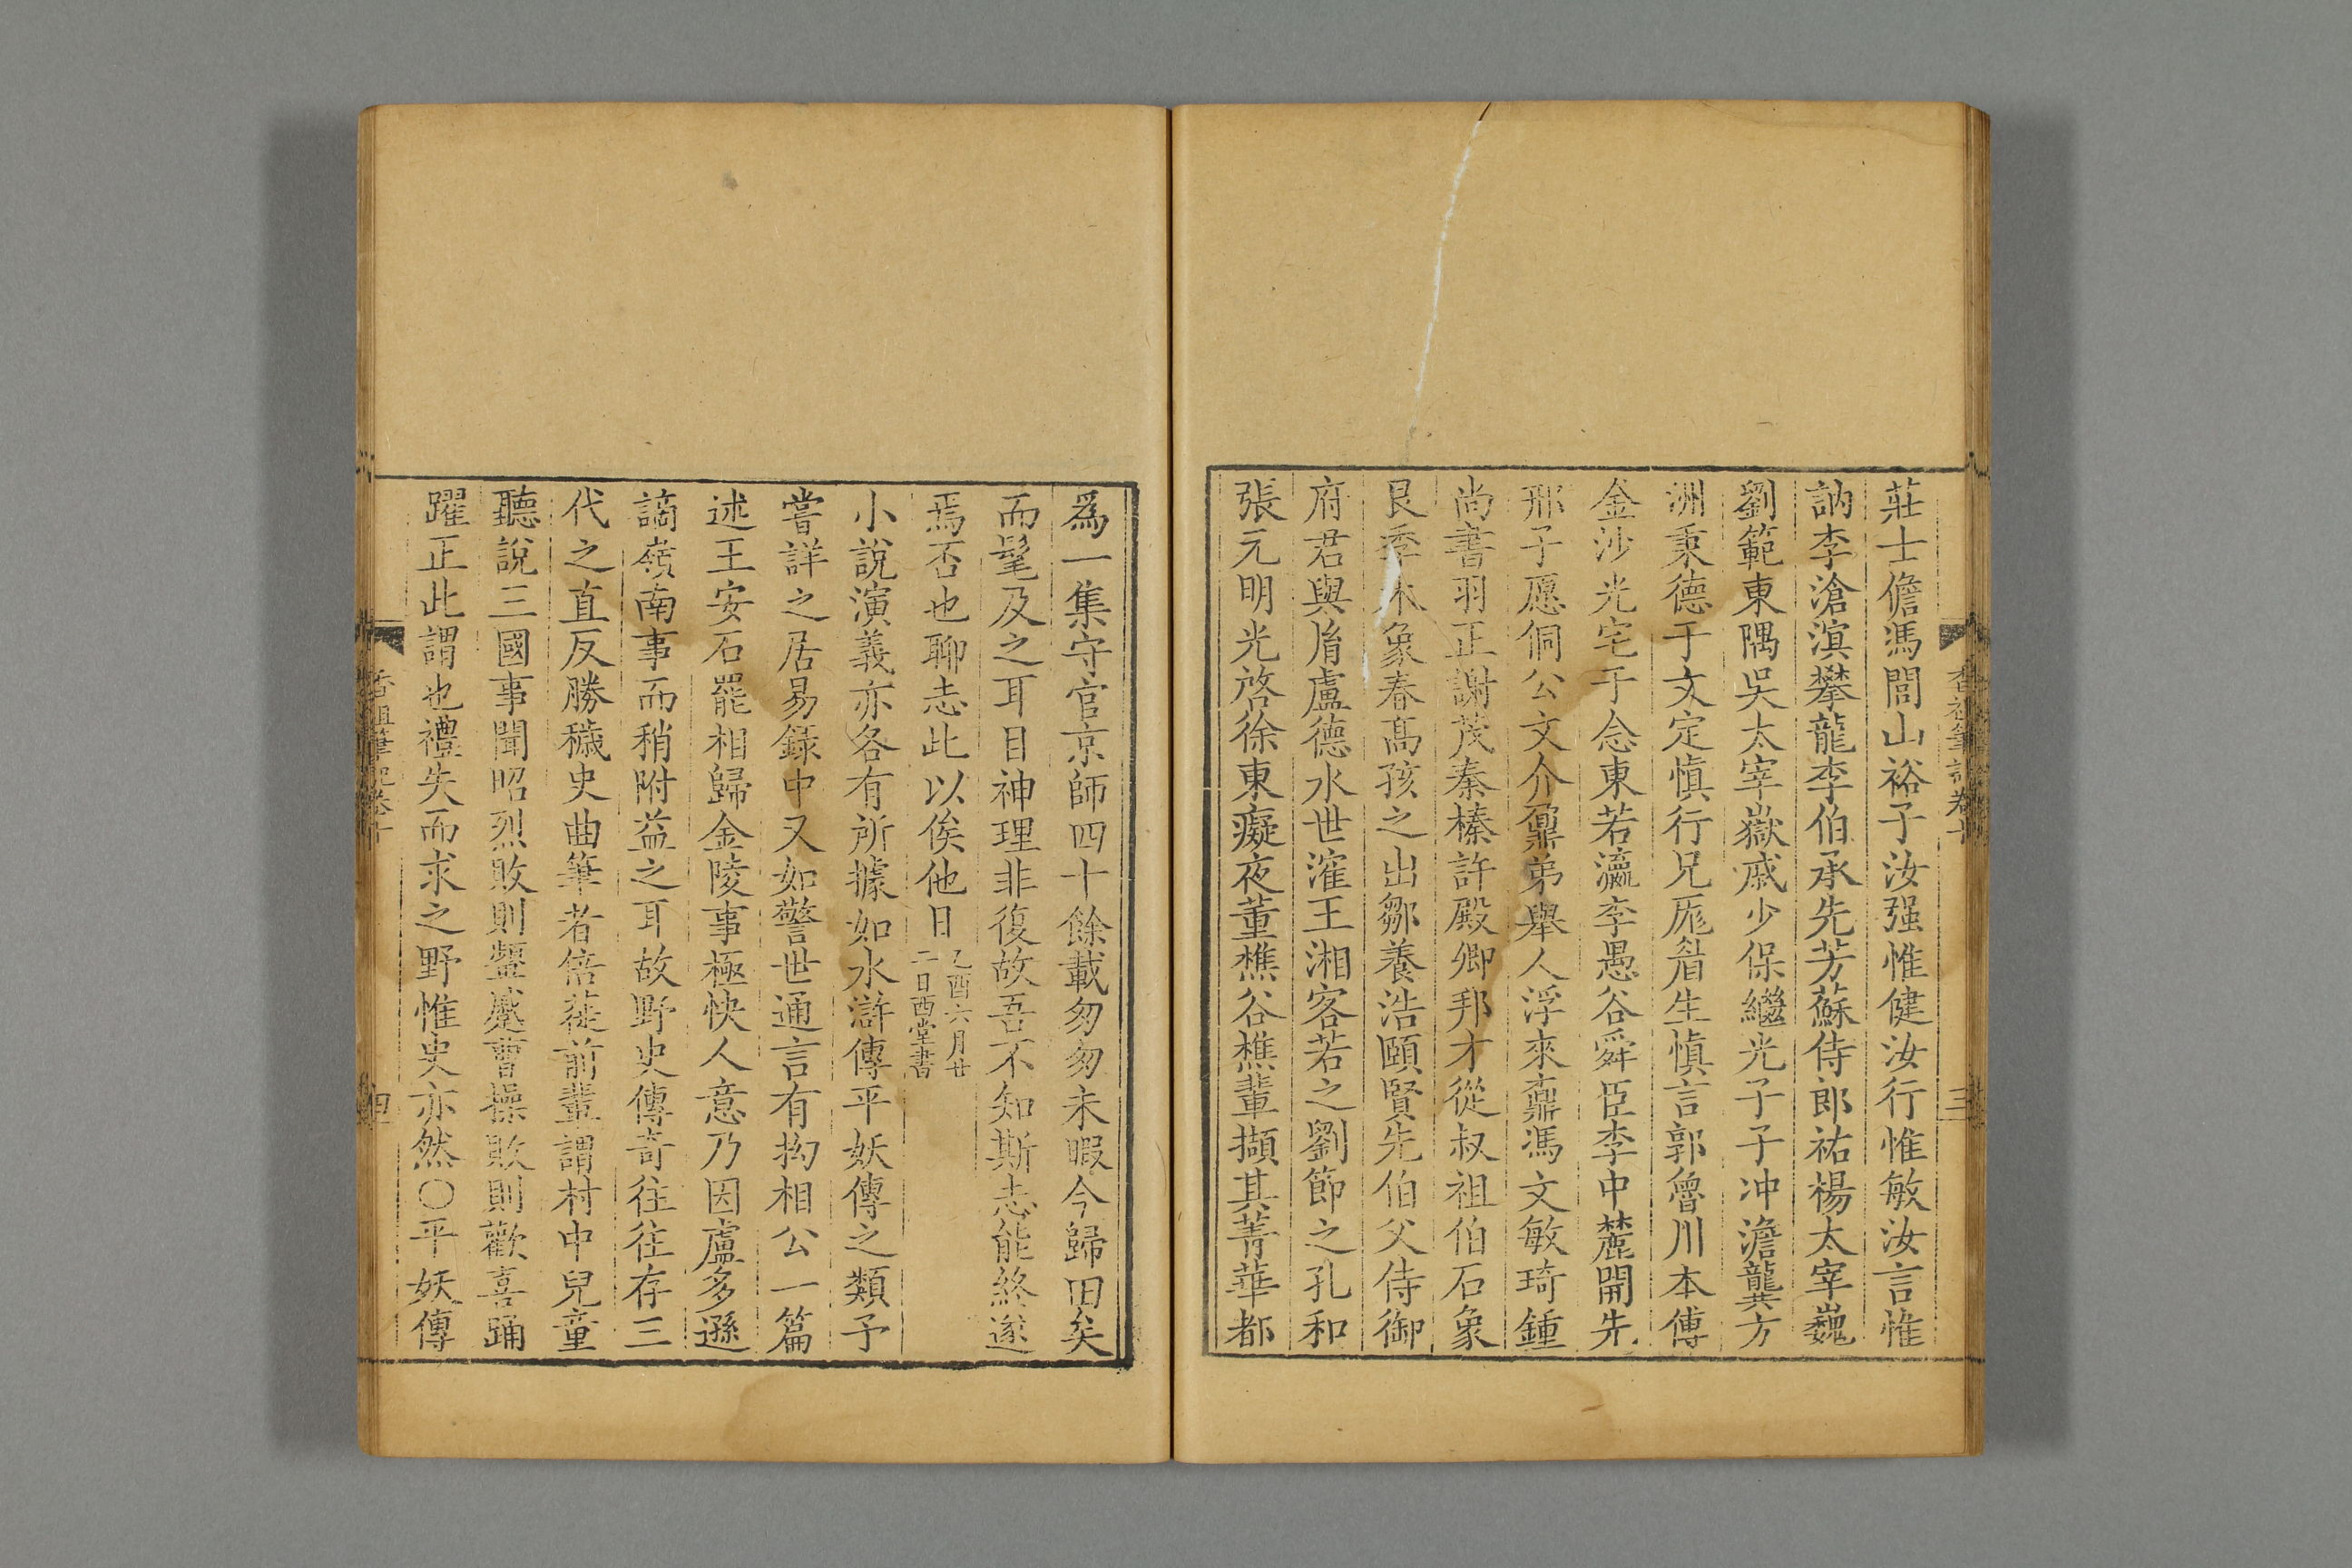 莊士儋馮閭山裕子汝强惟健汝行惟敏汝言惟
訥李滄溟攀龍李伯承先芳蘇侍郎祐楊太宰巍
劉範東隅吳太宰嶽戚少保繼光子子冲澹龔方
洲秉德于文定慎行兄厖眉生慎言郭魯川本傅
金沙光宅于念東若瀛李愚谷舜臣李中麓開先
邢子愿侗公文介鼐弟舉人浮來鼒馮文敏琦鍾
尚書羽正謝茂秦榛許殿卿邦才從叔祖伯石象
艮季木象春高孩之出鄒養浩頤賢先伯父侍御
府君與胤盧德水世㴶王湘客若之劉節之孔和
張元明光啓徐東癡夜董樵谷樵輩擷其菁華都
香祖筆記卷十
三
爲一集守官京師四十餘載匆匆未暇今歸田矣
而髦及之耳目神理非復故吾不知斯志能終遂
焉否也聊志此以俟他日
乙酉六月廿
二日酉堂書
小說演義亦各有所據如水滸傳平妖傳之類予
嘗詳之居易錄中又如警世通言有拗相公一篇
述王安石罷相歸金陵事極快人意乃因盧多遜
謫嶺南事而稍附益之耳故野史傳奇往往存三
代之直反勝穢史曲筆者倍蓰前輩謂村中兒童
聽說三國事聞昭烈敗則顰蹙曹操敗則歡喜踊
躍正此謂也禮失而求之野惟史亦然○平妖傳
香祖筆記卷十
四